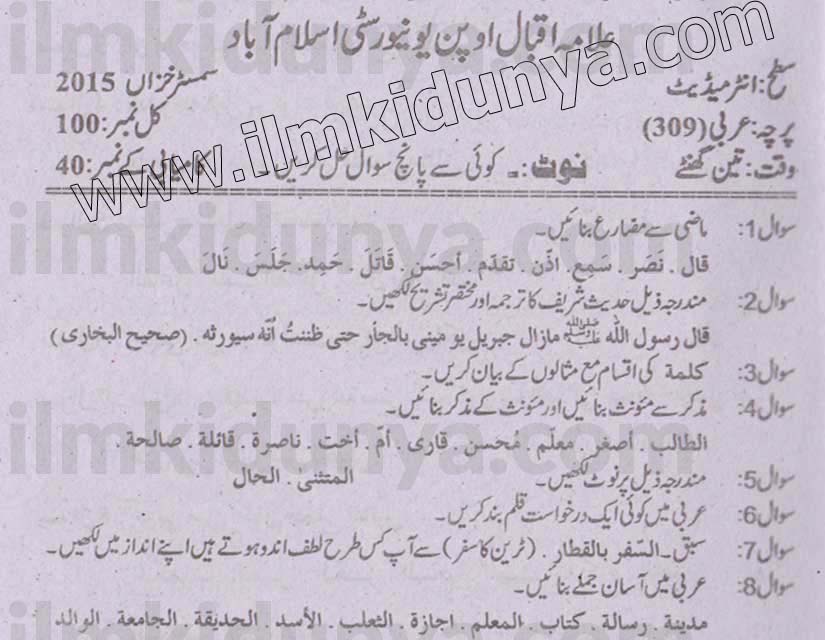 علامہ اقبال اوپن یونیورسٹی اسلام آباد
سطح: انٹرمیڈیٹ سمسٹر خزاں 2015
پرچہ: عربی (309) کل نمبر: 100
وقت: تین گھنٹے نوٹ:۔ کوئی سے پانچ سوال حل کریں۔ کامیابی کے نمبر: 40
www.ilmkidunya.com
سوال 1: ماضی سے مضارع بنائیں۔
قال . نَصَر . سَمِع . اذَن . تقدّم . أحسَن . قَاتَلَ . حَمِد . جَلَسَ . نَالَ
سوال 2: مندرجہ ذیل حدیث شریف کا ترجمہ اور مختصر تشریح لکھیں۔
قال رسول اللّٰہ ﷺ مازال جبریل یو مینی بالجار حتی ظننتُ أنّه سیورثه . (صحیح البخاری)
سوال 3: کلمة کی اقسام مع مثالوں کے بیان کریں۔
سوال 4: مذکر سے مئونث بنائیں اور مئونث کے مذکر بنائیں۔
الطالب . أصغر . معلّم . مُحسن . قاری . أمّ . أخت . ناصرة . قائلة . صالحة .
سوال 5: مندرجہ ذیل پر نوٹ لکھیں۔ المتثنیٰ . الحال
سوال 6: عربی میں کوئی ایک درخواست قلم بند کریں۔
سوال 7: سبق۔ السّفر بالقطار . (ٹرین کا سفر) سے آپ کس طرح لطف اندوہوتے ہیں اپنے انداز میں لکھیں۔
سوال 8: عربی میں آسان جملے بنائیں۔
مدینة . رسالة . کتاب . المعلم . اجازة . الثعلب . الأسد . الحدیقة . الجامعة . الوالد